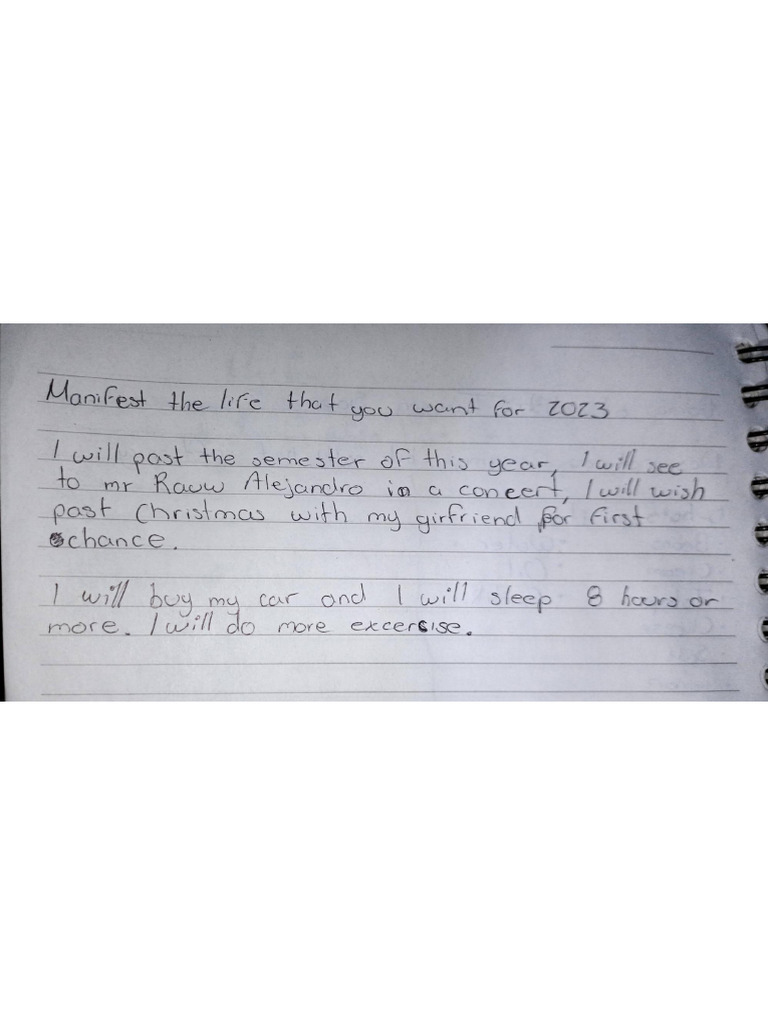 Manifest the life that you want for 2023
I will past the semester of this year, I will see
to mr Rauw Alejandro in a concert, I will wish
past Christmas with my girlfriend for first
chance.
I will buy my car and I will sleep 8 hours or
more. I will do more excercise.